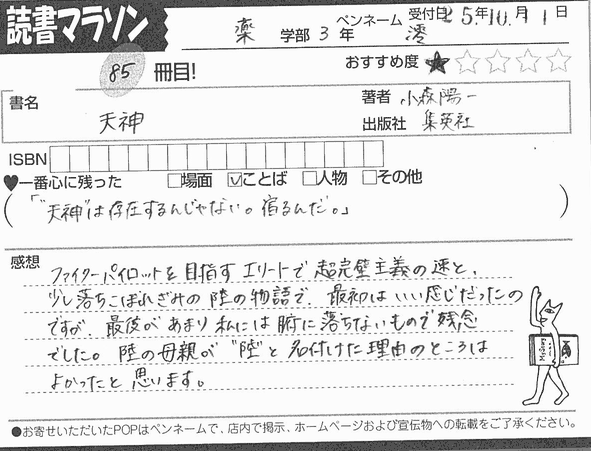 読書マラソン
薬 学部 3 年 ペンネーム 澪 受付日 25年10月11日
85 冊目!
おすすめ度 ★☆☆☆☆
書名 天神
著者 小森陽一
出版社 集英社
ISBN
♥一番心に残った □場面 ☑ことば □人物 □その他
(「"天神"は存在するんじゃない。宿るんだ。」)
感想
ファイターパイロットを目指すエリートで超完璧主義の速と、
少し落ちこぼれぎみの陸の物語で、最初はいい感じだったの
ですが、最後があまり私には腑に落ちないもので残念
でした。陸の母親が"陸"と名付けた理由のところは
よかったと思います。
●お寄せいただいたPOPはペンネームで、店内で掲示、ホームページおよび宣伝物への転載をご了承ください。